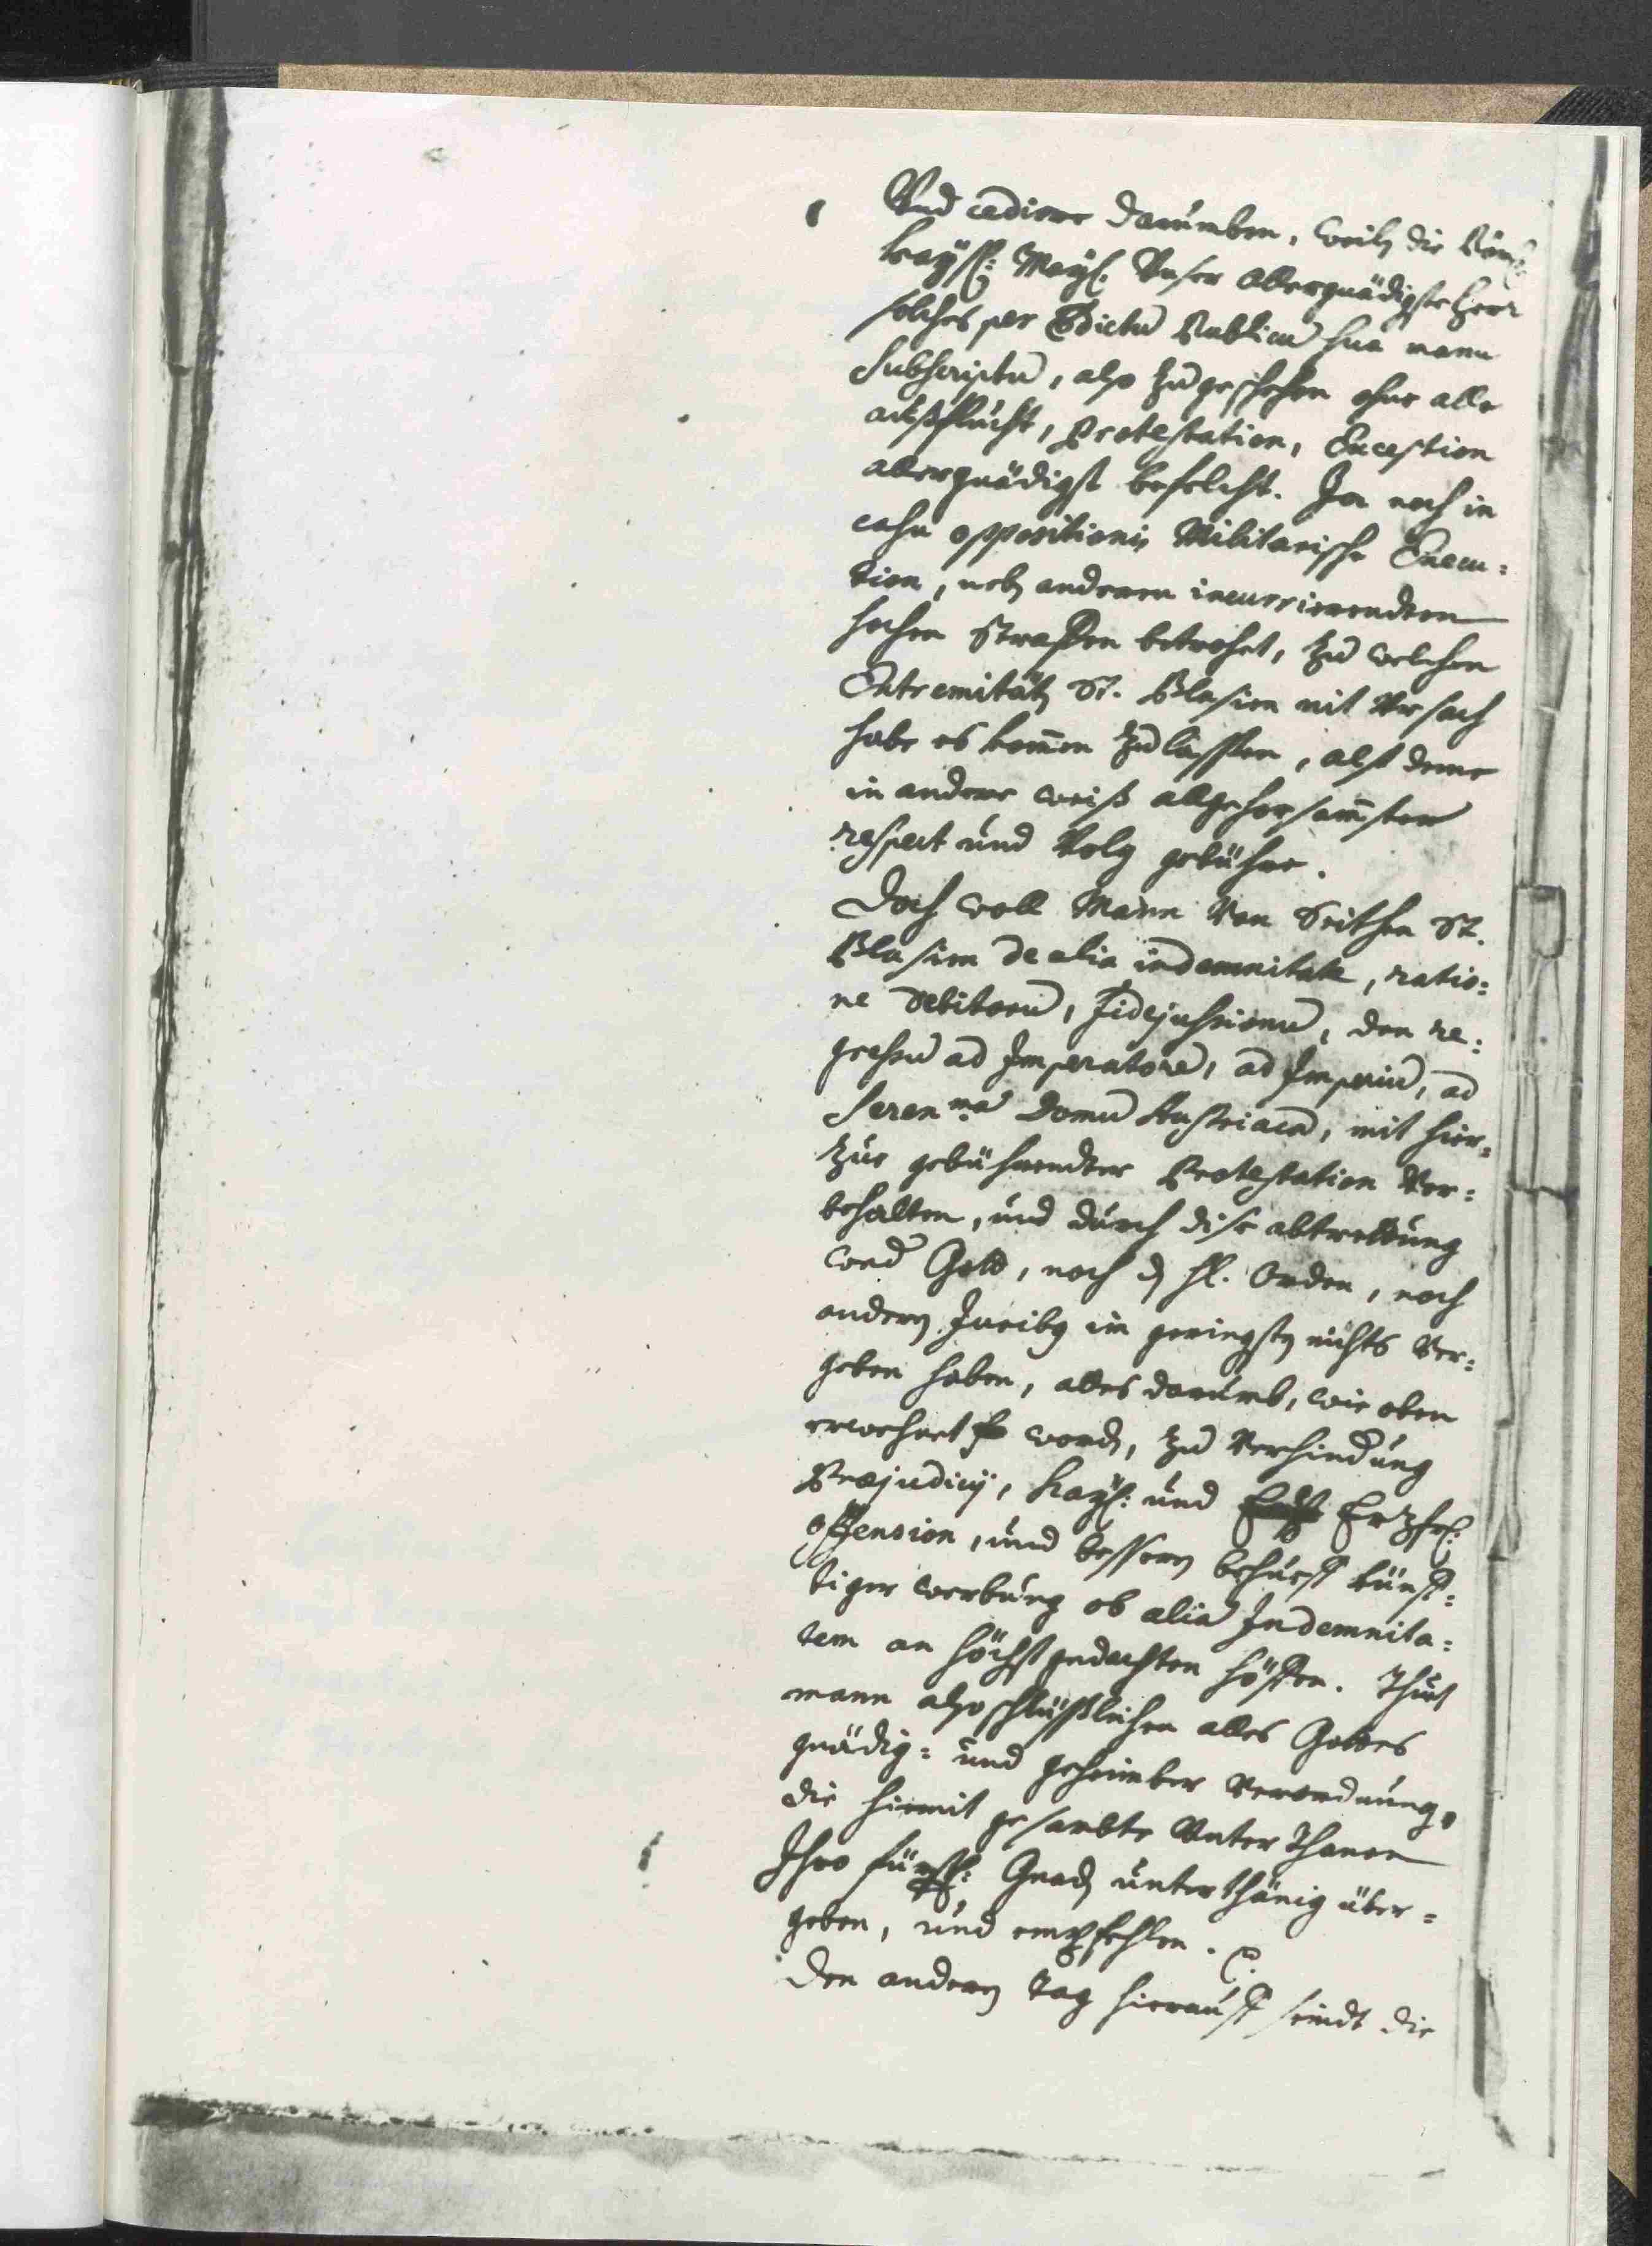 Vnd cediere darumben, weilen die Röm:
Kaÿß: Maÿ: Vnser allergnädigste Herr
solches per Edictu Publicu sua manu
Subscriptu, also zu geschehen ohne alle
außflucht, Protestation, Exception
allergnädigst befelcht. Ja noch in
casu oppositionis Militarische Execu=
tion, neb anderen incurrierendten
hohen Straffen betrohet, zu welchen
Extremität St. Blasien nit Vrsach
habe es kommen zu lassen, alß deme
in andere weiß allgehorsamsten
respect und Volg gebühre.
Doch woll Mann Von Seithen St.
Blasien de alia indemnitate, ratio=
ne debitoru, Fidejussionu, den re=
gressu ad Imperatore, ad Imperiu, ad
Seren:ma Domu Austriaca, mit hier=
zue gebührendter Protestation Vor=
behalten, und durch dise abtrettung
wed Gott, noch d hl. Orden, noch
andern Juribg im geringsten nichts Ver=
geben haben, alles darumb, wie oben
erwehnet word, zu Verhindung
Præjudicij, Kaÿ: und Ertzh:
offension, und bessern behueff künff=
tiger werbung ob alia Indemnita=
tem an höchstgedachten höffen. Thuet
mann also schlüßlichen alles Gottes
gnädig= und geheimber Verordnung,
die hiemit gesambte Vnterthanen
Ihro fürstl: Gnad unterthänig über=
geben, und empfehlen.
Den andern Tag hierauff seindt die